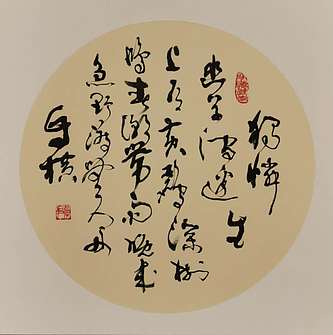 獨憐
幽草澗邊生
上有黄鸝深樹
鳴春潮帶雨晚來
急野渡無人舟
自横